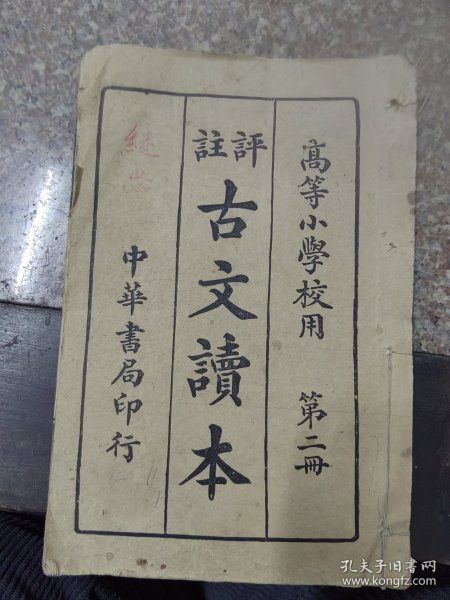 高等小學校用 第二冊
評註
古文讀本
中華書局印行
孔夫子旧书网
www.kongfz.com